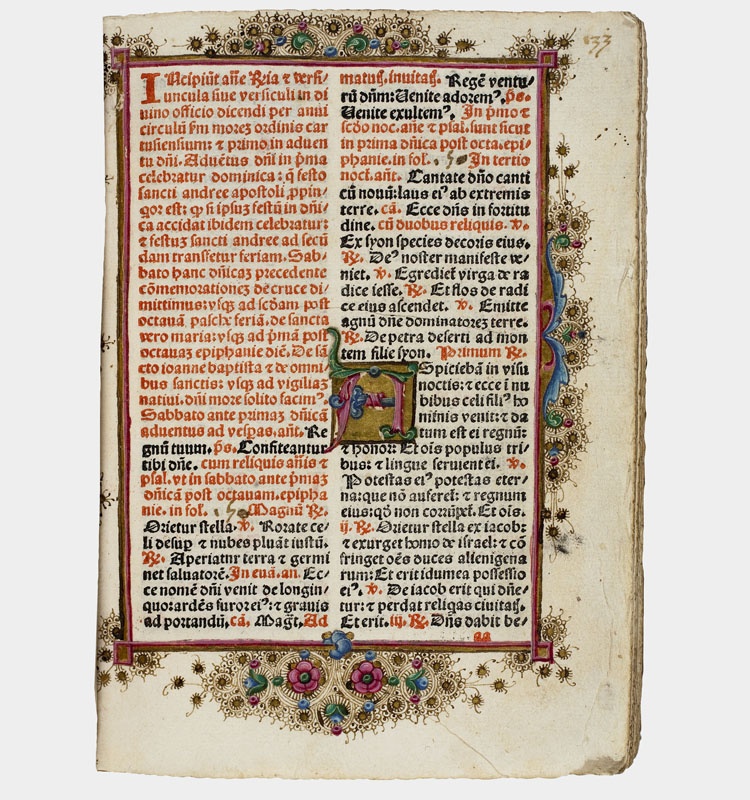 33
INcipiūt añe Rīa ⁊ versi/
uncula siue versiculi in di
uino officio dicendi per anni
circulū ẜm morez ordinis car
tusiensium: ⁊ primo in aduen
tu dñi. Aduētus dñi in p̄ma
celebratur dominica: q̄ festo
sancti andree apostoli ꝓpin/
qor est: ꝙ si ipsuz festū in dñi/
ca accidat ibidem celebratur:
⁊ festuz sancti andree ad secū
dam transfetur feriam. Sab/
bato hanc dñicaz precedente
cōmemorationez de cruce di/
mittimus: vsqz ad scdam post
octauā pasche feriā. de sancta
vero maria: vsqz ad p̄mā post
octauaz epiphanie diē. De sā/
cto ioanne baptista ⁊ de omni/
bus sanctis: vsqz ad vigiliaz
natiui. dñi more solito facimꝰ.
Sabbato ante primaz dñicā
aduentus ad vesꝑas. añt. Re
gnū tuum. p̄s. Confiteantur
tibi dñe. cum reliquis añis ⁊
psal. vt in sabbato ante p̄maz
dñicā post octauam. epipha
nie. in fol. . Magnū ℟.
Orietur stella. ℣. Rorate ce/
li desuꝑ ⁊ nubes pluāt iustū.
℟. Aperiatur terra ⁊ germi
net saluatorē. In euā. an. Ec/
ce nomē dñi venit de longin/
quo: ardēs furor eiꝰ: ⁊ grauis
ad portandū. cā. Magt̄. Ad
matutꝭ. inuitatꝭ. Regē ventu/
rū dñm: Venite adoremꝰ. p̄s.
Venite exultemꝰ. In p̄mo ⁊
scdo noc. añe ⁊ psal. sunt sicut
in prima dñica post octa. epi/
phanie. in fol. . In tertio
noct. añt. Cantate dño canti
cū nouū: laus eiꝰ ab extremis
terre. cā. Ecce dñs in fortitu
dine. cū duobus reliquis. ℣.
Ex syon species decoris eius.
℟. Deꝰ noster manifeste ve/
niet. ℣. Egredieť virga de ra
dice iesse. ℟. Et flos de radi
ce eius ascendet. ℣. Emitte
agnū dñe dominatorez terre.
℟. De petra deserti ad mon
tem filie syon. Primum ℟.
ASpiciebā in visu
noctis: ⁊ ecce ī nu
bibus celi filiꝰ ho
minis venit: ⁊ da
tum est ei regnū:
⁊ honor: Et ois populus tri/
bus: ⁊ lingue seruient ei. ℣.
Potestas eiꝰ potestas eter/
na: que nō aufereť: ⁊ regnum
eius: qđ non corrūpeť. Et ois.
ij. ℟. Orietur stella ex iacob:
⁊ exurget homo de israel: ⁊ cō
fringet oēs duces alienigena
rum: Et erit idumea possessio
eiꝰ. ℣. De iacob erit qui dñe/
tur: ⁊ perdat reliqas ciuitatꝭ.
Et erit. iij. ℟. Dñs dabit be/
aa